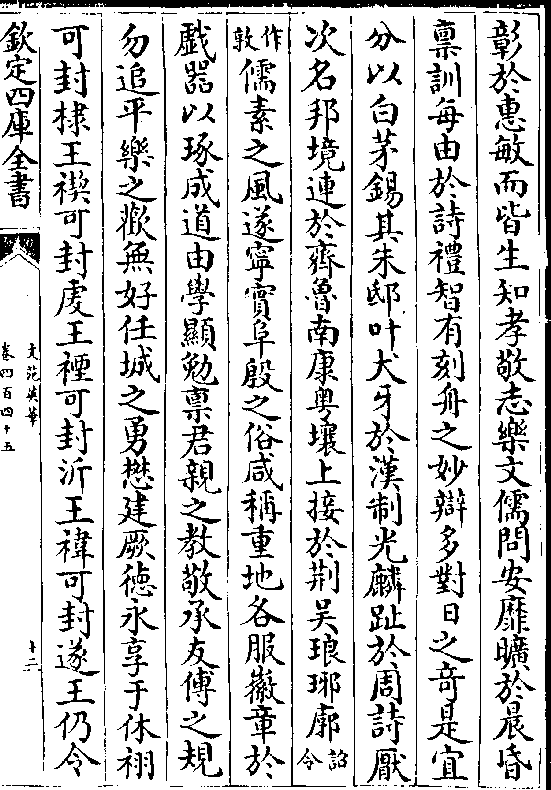 彰於惠敏而皆生知孝敬志樂文儒問安靡曠於晨昏
稟訓每由於詩禮智有刻舟之妙辯多對日之奇是宜
分以白茅錫其朱邸叶犬牙於漢制光麟趾於周詩厭
次名邦境連於齊魯南康粵壤上接於荆吴琅琊廓詔令
作敦儒素之風遂寧實阜殷之俗咸稱重地各服徽章於
戲器以琢成道由學顯勉稟君親之教敬承友傅之規
勿追平樂之歡無好任城之勇懋建厥徳永享于休祤
可封棣王禊可封䖍王禋可封沂王禕可封遂王仍令
欽定四庫全書
文苑英華
卷四百四十五
十二